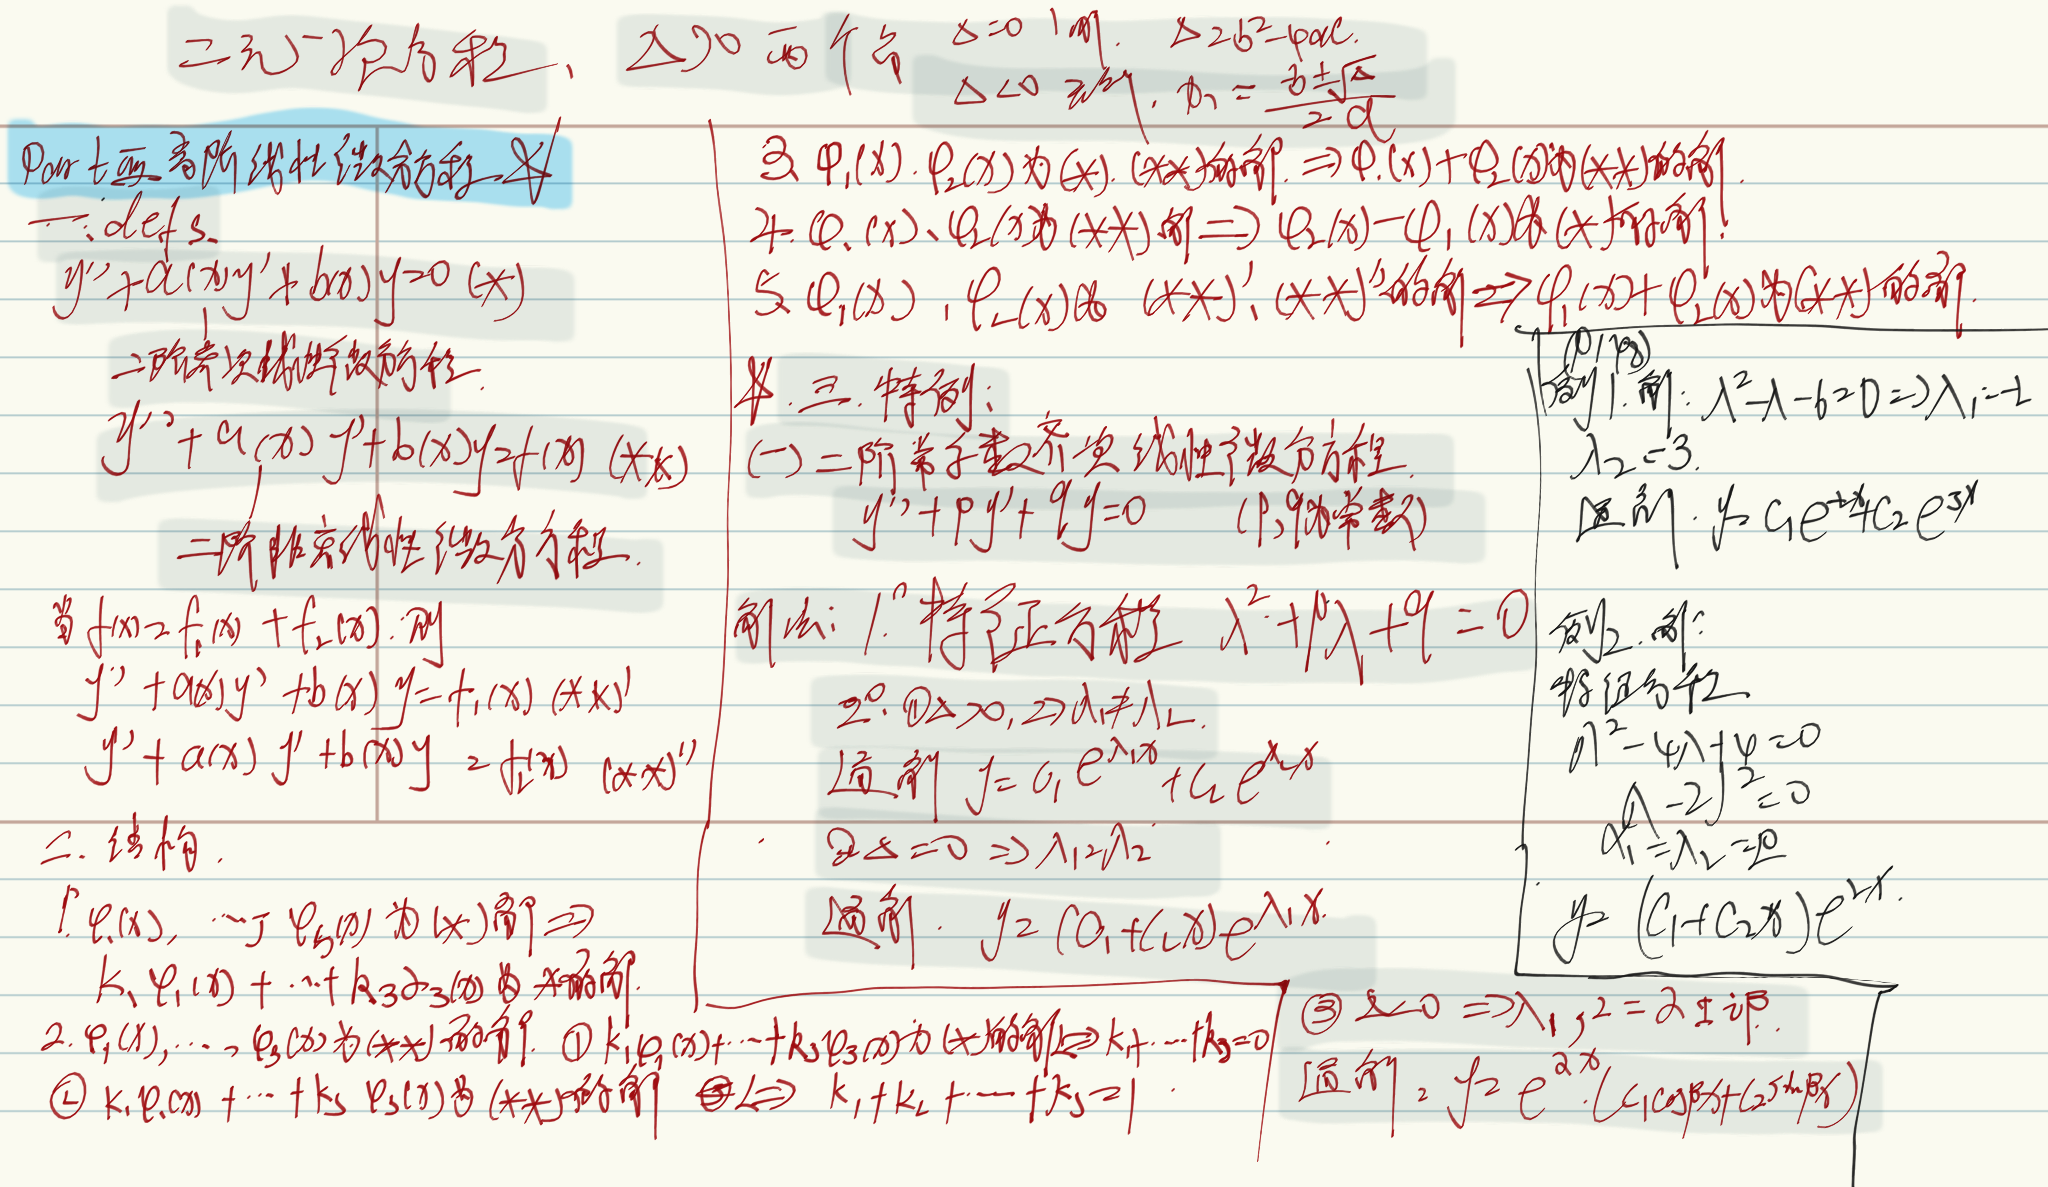 二元一次方程、 Δ>0 两个解 Δ=0 1解. Δ=b²-4ac.
Δ<0 无解. = b±√Δ / 2a
Part 五 高阶线性微分方程
一. defs.
y''+a(x)y'+b(x)y=0 (*)
二阶齐次线性微分方程.
y''+a(x)y'+b(x)y=f(x) (**)
二阶非齐线性微分方程.
当f(x)=f₁(x)+f₂(x).则
y''+a(x)y'+b(x)y=f₁(x) (**)'
y''+a(x)y'+b(x)y=f₂(x) (**)''
二. 结构.
1. φ₁(x), ⋯, φs(x)为(*)解⇒
k₁φ₁(x)+⋯+k₃φ₃(x)为*的解.
2. φ₁(x),⋯, φ₃(x)为(**)的解. ① k₁φ₁(x)+⋯+k₃φ₃(x)为(*)的解⇔k₁+⋯+k₃=0
② k₁φ₁(x)+⋯+ksφs(x)为(**)的解 ⇔ k₁+k₂+⋯+ks=1
3. φ₁(x).φ₂(x)为(*).(**)的解.⇒φ₁(x)+φ₂(x)为(**)的解.
4. φ₁(x)、φ₂(x)为(**)解⇒φ₂(x)-φ₁(x)为(*)的解.
5. φ₁(x),φ₂(x)为 (**)'、(**)''的解⇒φ₁(x)+φ₂(x)为(**)的解.
三.特例:
(一)二阶常系数齐次线性微分方程.
y''+py'+qy=0 (p,q为常数)
解法: 1°特征方程 λ²+pλ+q=0
2°.①Δ>0,⇒λ₁≠λ₂.
通解 y=c₁e^λ₁x+c₂e^λ₂x
②Δ=0⇒λ₁=λ₂
通解. y=(c₁+c₂x)e^λ₁x.
③Δ<0⇒λ₁,₂=α±iβ.
通解. y=e^αx.(c₁cosβx+c₂sinβx)
(P198)
例1.解: λ²-λ-6=0⇒λ₁=-2
λ₂=3.
通解. y=c₁e^-2x+c₂e^3x
例2.解:
特征方程
λ²-4λ+4=0
(λ-2)²=0
λ₁=λ₂=2
y=(C₁+C₂x)e^2x.